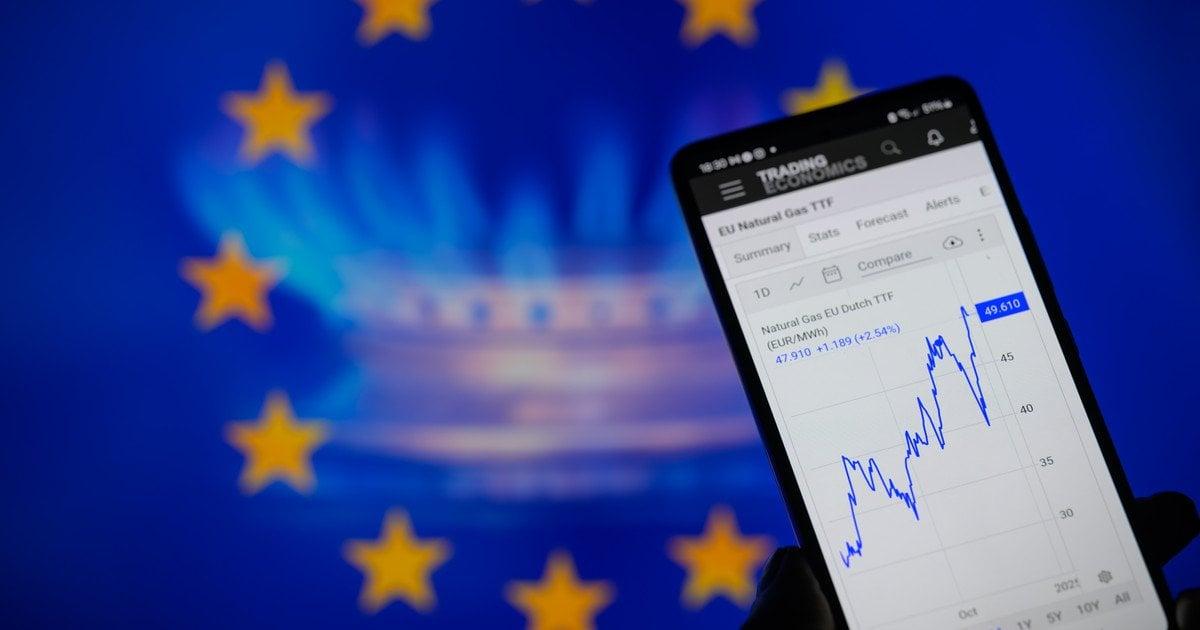 18:30
81%
TRADING
ECONOMICS
EU Natural Gas TTF
Summary Stats Forecast Alerts E
1D Compare
Natural Gas EU Dutch TTF
(EUR/MWh)
47.910 +1.189 (+2.54%)
49.610
45
40
35
30
Oct 2025
1Y 5Y 10Y All